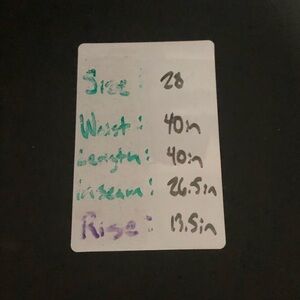 Size: 28
Waist: 40in
Length: 40in
inseam: 26.5in
Rise: 13.5in